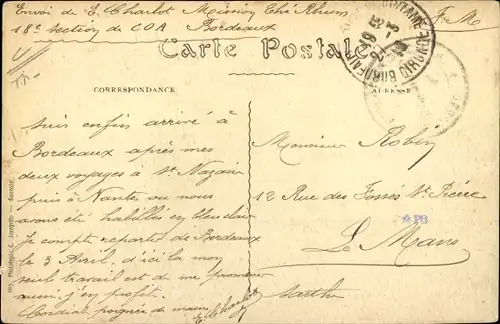 Envoi de E. Charlot Mission Thé Rhum F. M
18e Section de COA Bordeaux
Carte Postale
CORRESPONDANCE
ADRESSE
suis enfin arrivé à
Bordeaux après mes
deux voyages à St Nazaire
puis à Nantes ou nous
avons été habillés en bleu clair
Je compte repartir de Bordeaux
le 3 Avril, d'ici là mon
seul travail est de me promener
aussi, j'en profite.
Cordial poignée de main
E Charlot
Monsieur Robin
12 Rue des Fossés St Pierre
Le Mans
Sarthe